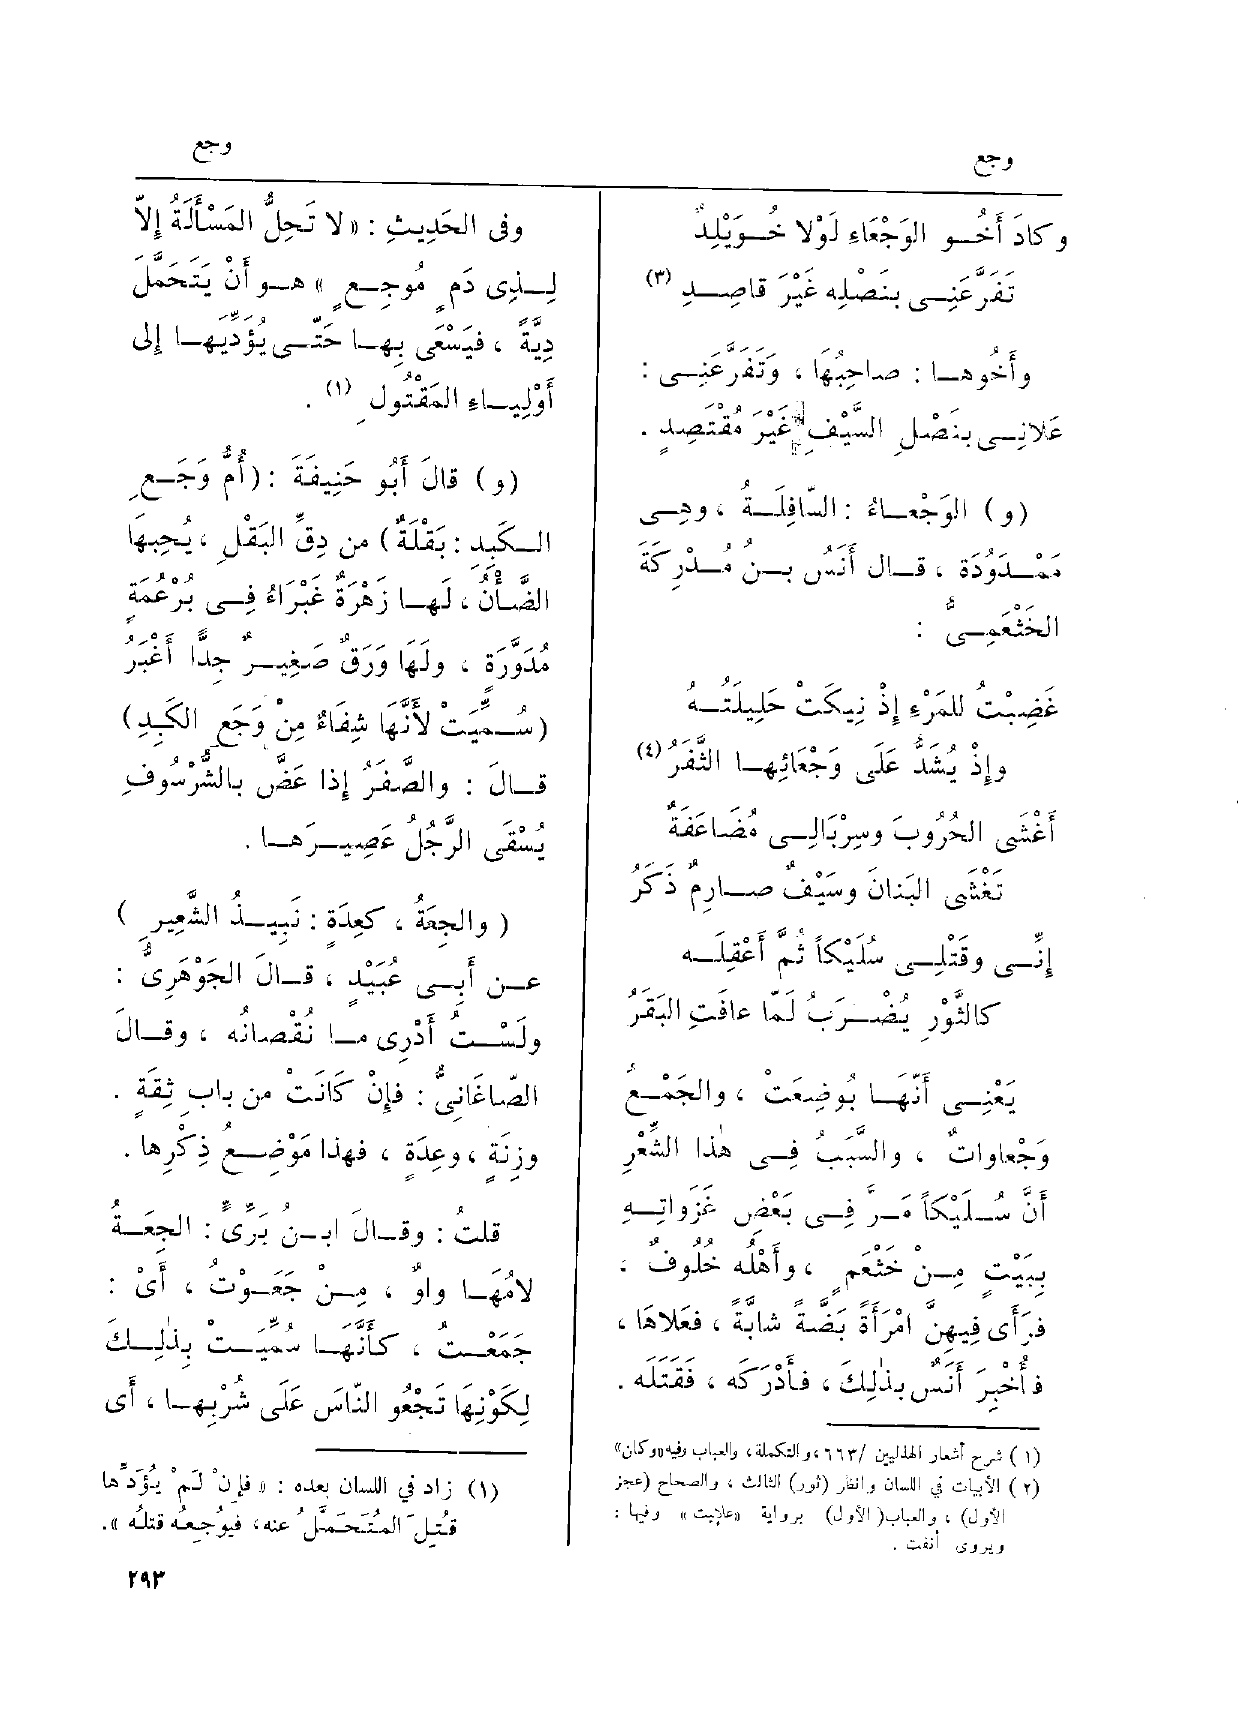 وجع
وجع
وكادَ أَخُو الوَجْعَاءِ لَوْلا خُوَيْلِدٌ
تَفَرَّعَنِى بنَصْلِهِ غَيْرَ قاصِدِ (٣)
وأَخُوها : صاحِبُهَا ، وَتَفَرَّعَنِى :
عَلانِى بنَصْلِ السَّيْفِ غَيْرَ مُقْتَصِدٍ .
(و) الوَجْعاءُ : السّافِلَةُ ، وهى
مَمْدُودَة ، قال أَنَسُ بنُ مُدْرِكَةَ
الخَثْعَمِىُّ :
غَضِبْتُ للمَرْءِ إِذْ نِيكَتْ حَلِيلَتُهُ
وإِذْ يُشَدُّ عَلَى وَجْعَائِها الثَّفَرُ (٤)
أَغْشَى الحُرُوبَ وسِرْبَالِى مُضَاعَفَةٌ
تَغْشَى البَنانَ وسَيْفٌ صارِمٌ ذَكَرُ
إِنِّى وقَتْلِى سُلَيْكاً ثُمَّ أَعْقِلَه
كالثَّوْرِ يُضْرَبُ لَمّا عافَتِ البَقَرُ
يَعْنِى أَنَّهَا بُوضِعَتْ ، والجَمْعُ
وَجْعاواتٌ ، والسَّبَبُ فِى هٰذا الشِّعْرِ
أَنَّ سُلَيْكاً مَرَّ فِى بَعْضِ غَزَواتِهِ
بِبَيْتٍ مِنْ خَثْعَمٍ ، وأَهْلُه خُلُوفٌ ،
فرَأَى فِيهِنَّ امْرَأَةً بَضَّةً شابَّةً ، فعَلاهَا ،
فأُخْبِرَ أَنَسٌ بذٰلِكَ ، فأَدْرَكَه ، فقَتَلَه .
(١) شرح أشعار الهذليين /٦٦٣، والتكملة، والعباب وفيه «وكان»
(٢) الأبيات في اللسان وانظر (ثور) الثالث ، والصحاح (عجز
الأول) ، والعباب (الأول) برواية «علانيت» وفيها :
ويروى أنفت .
وفى الحَدِيثِ : « لا تَحِلُّ المَسْأَلَةُ إِلاّ
لِذِى دَمٍ مُوجِعٍ » هو أَنْ يَتَحَمَّلَ
دِيَّةً ، فيَسْعَى بِها حَتَّى يُؤَدِّيَها إِلى
أَوْلِياءِ المَقْتُولِ (١) .
(و) قالَ أَبُو حَنِيفَةَ : (أُمُّ وَجَعِ
الكَبِدِ : بَقْلَةٌ) من دِقِّ البَقْلِ ، يُحِبُّهَا
الضَّأْنُ ، لَها زَهْرَةٌ غَبْرَاءُ فِى بُرْعُمَةٍ
مُدَوَّرَةٍ ، ولَهَا وَرَقٌ صَغِيرٌ جِدًّا أَغْبَرُ
(سُمِّيَتْ لأَنَّهَا شِفَاءٌ مِنْ وَجَعِ الكَبِدِ)
قالَ : والصَّفَرُ إِذا عَضَّ بالشُّرْسُوفِ
يُسْقَى الرَّجُلُ عَصِيرَها .
( والجِعَةُ ، كعِدَةٍ : نَبِيذُ الشَّعِيرِ )
عن أَبِى عُبَيْدٍ ، قالَ الجَوْهَرِىُّ :
ولَسْتُ أَدْرِى ما نُقْصَانُه ، وقالَ
الصّاغَانِىُّ : فإِنْ كَانَتْ من بابِ ثِقَةٍ .
وزِنَةٍ ، وعِدَةٍ ، فهذا مَوْضِعُ ذِكْرِها .
قلتُ : وقالَ ابنُ بَرِّىٌّ : الجِعَةُ
لامُهَا واوٌ ، مِنْ جَعَوْتُ ، أَىْ :
جَمَعْتُ ، كأَنَّهَا سُمِّيَتْ بِذٰلِكَ
لِكَوْنِهَا تَجْعُو النّاسَ عَلَى شُرْبِها ، أَى
(١) زاد في اللسان بعده : « فإِنْ لَمْ يُؤَدِّها
قُتِلَ المُتَحَمَّلُ عنه، فيُوجِعُه قتلُه ».
٢٩٣